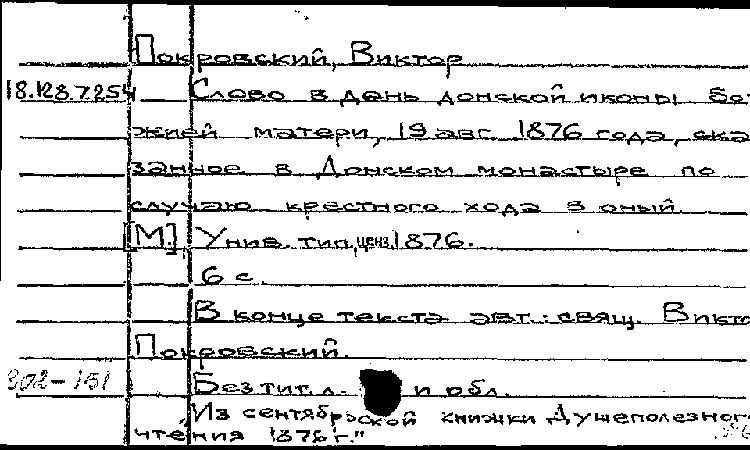 Покровский, Виктор
18.128.7.254 Слово в день донской иконы бо-
жией матери, 19 авг. 1876 года, ска-
занное в Донском монастыре по
случаю крестного хода в оный.
[М.] Унив. тип, ценз. 1876.
6 с.
В конце текста авт.: свящ. Викто
Покровский.
802-151 Без тит. л. и обл.
Из сентябрьской книжки Душеполезного
чтения 1876 г."